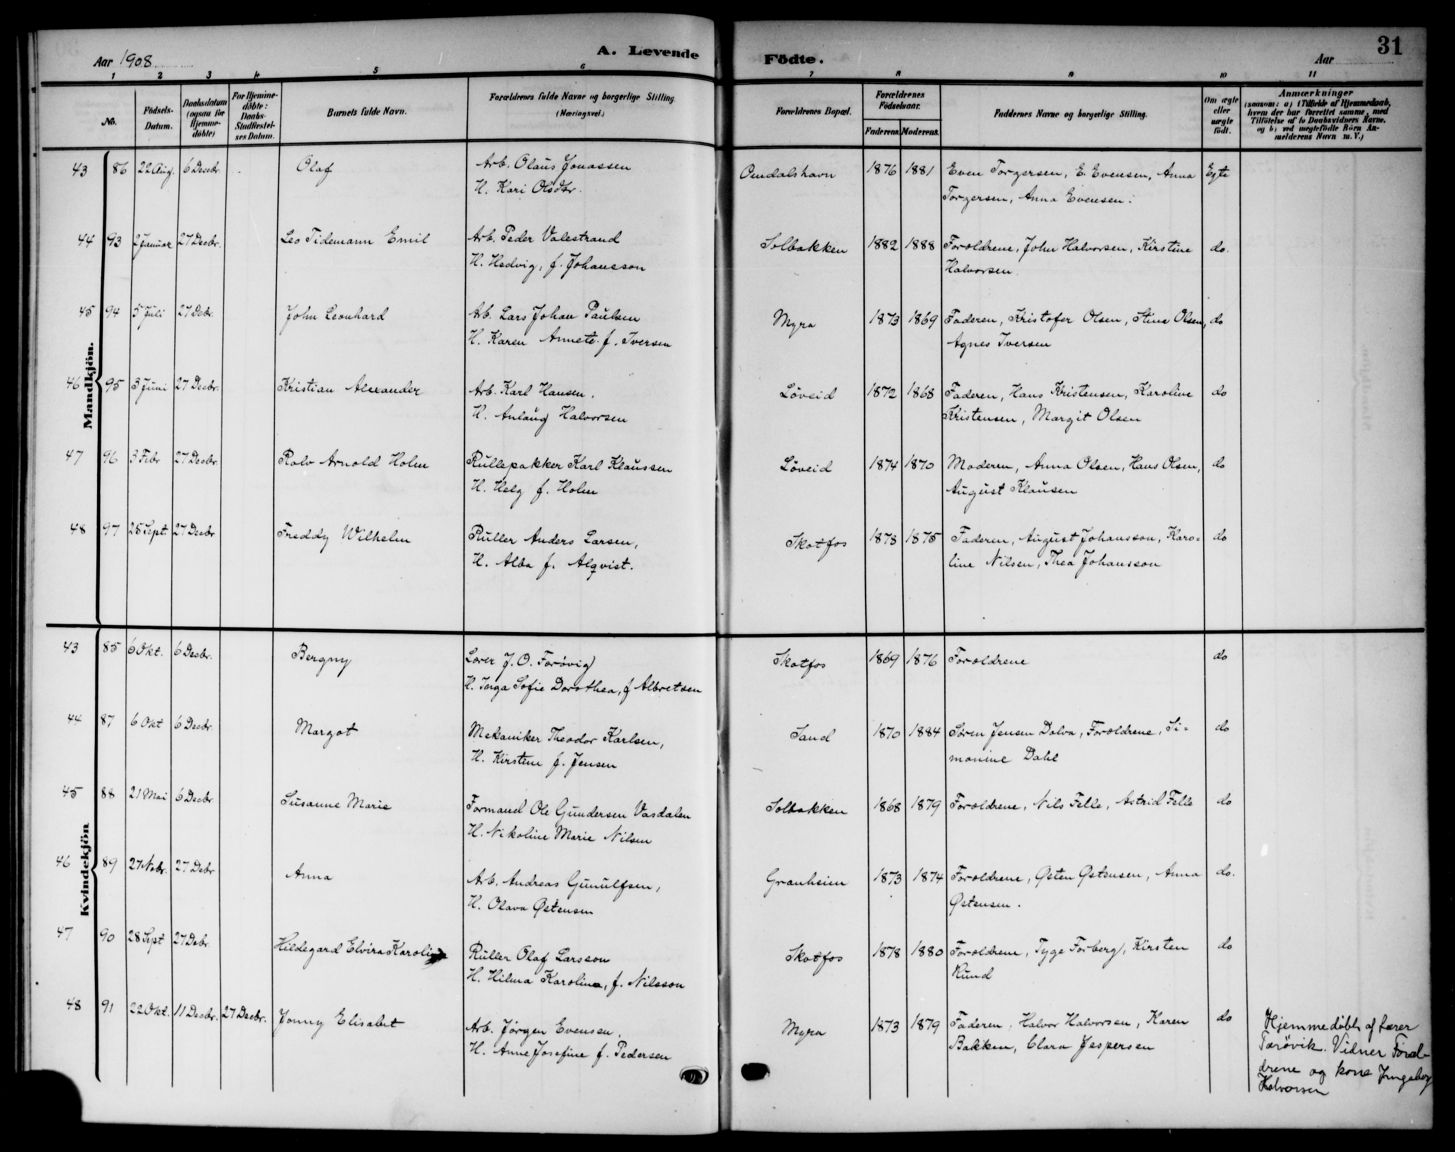 Aar 1908.
A. Levende
Födte.
Aar
31
1 2 3 4 5 6 7 8 9 10 11
No.
Födsels-
Datum.
Daabsdatum
(ogsaa for
Hjemme-
döbte)
For Hjemme-
döbte:
Daabs-
Stadfæstel-
ses Datum.
Barnets fulde Navn.
Forældrenes fulde Navne og borgerlige Stilling
(Næringsvei.)
Forældrenes Bopæl.
Forældrenes
Födselsaar.
Faderens Moderens.
Faddernes Navne og borgerlige Stilling.
Om ægte
eller
uægte
födt.
Anmærkninger
Mandkjön.
43 86 22 Aug. 6 Decbr. Olaf Arb. Olaus Jonassen 1876 1881 Even Torgersen, E. Evensen, Anna Egte
H. Kari Olsdtr. Torgersen, Anna Evensen.
44 93 2 Januar 27 Decbr. Leo Tidemann Emil Arb. Peder Valestrand Solbakken 1882 1888 Forældrene, John Halvorsen, Kirstine do.
H. Hedvig, f. Johansson Halvorsen.
45 94 5 Juli 27 Debr. John Leonhard Arb. Lars Johan Paulsen Myra 1873 1869 Faderen, Kristofer Olsen, Stine Olsen, do
H. Karen Annete f. Iversen Agnes Iversen
46 95 3 Juni 27 Decbr. Kristian Alexander Arb. Karl Hansen. Löveid 1872 1868 Faderen, Hans Kristensen, Karoline do
H. Anlaug Halvorsen Kristensen, Margit Olsen
47 96 3 Febr 27 Decbr. Rolv Arnold Holm Rullepakker Karl Klaussen Löveid 1874 1870 Moderen, Anna Olsen, Hans Olsen, do
H. Helg f. Holm August Klausen
48 97 25 Sept. 27 Decbr Freddy Wilhelm Ruller Anders Larsen, Skotfos 1878 1875 Faderen, August Johansson, Karo-
do
H. Alda f. Alqvist. line Nilsen, Thea Johansson
Kvindekjön
43 85 6 Okt. 6 Decbr. Bergny Lærer J. O. Farövig Skotfos 1869 1876 Forældrene do
H. Inga Sofie Dorothea, f Albretsen
44 87 6 Okt 6 Decbr. Margot Mekaniker Theodor Karlsen, Sand 1870 1884 Sören Jensen Dalva, Forældrene, Si- do
H. Kirstine f. Jensen monine Dahl
45 88 21 Mai 6 Decbr Susanne Marie Formand Ole Gundersen Vasdalen Solbakken 1868 1879 Forældrene, Nils Felle, Astrid Felle do
H. Nikoline Marie Nilsen
46 89 27 Nobr. 27 Debr Anna Arb. Andreas Gunulfsen, Granheim 1873 1874 Forældrene, Østen Østensen, Anna do.
H. Olava Østensen Østensen.
47 90 28 Sept 27 Debr. Hildegard Elvira Karoline Ruller Olaf Larsson Skotfos 1878 1880 Forældrene, Tyge Forberg, Kirsten do
H. Hilma Karoline, f. Nilsson
48 91 22 Okt. 11 Decbr. 27 Decbr. Jonny Elisabet Arb. Jörgen Evensen. Myra 1873 1879 Faderen, Halvor Halvorsen, Karen do
H. Anne Josefine f. Pedersen Bakken, Clara Jespersen
Hjemmedöbt af lærer
Færövik. Vidner Foræl-
drene og kone Ingeborg
Halvorsen